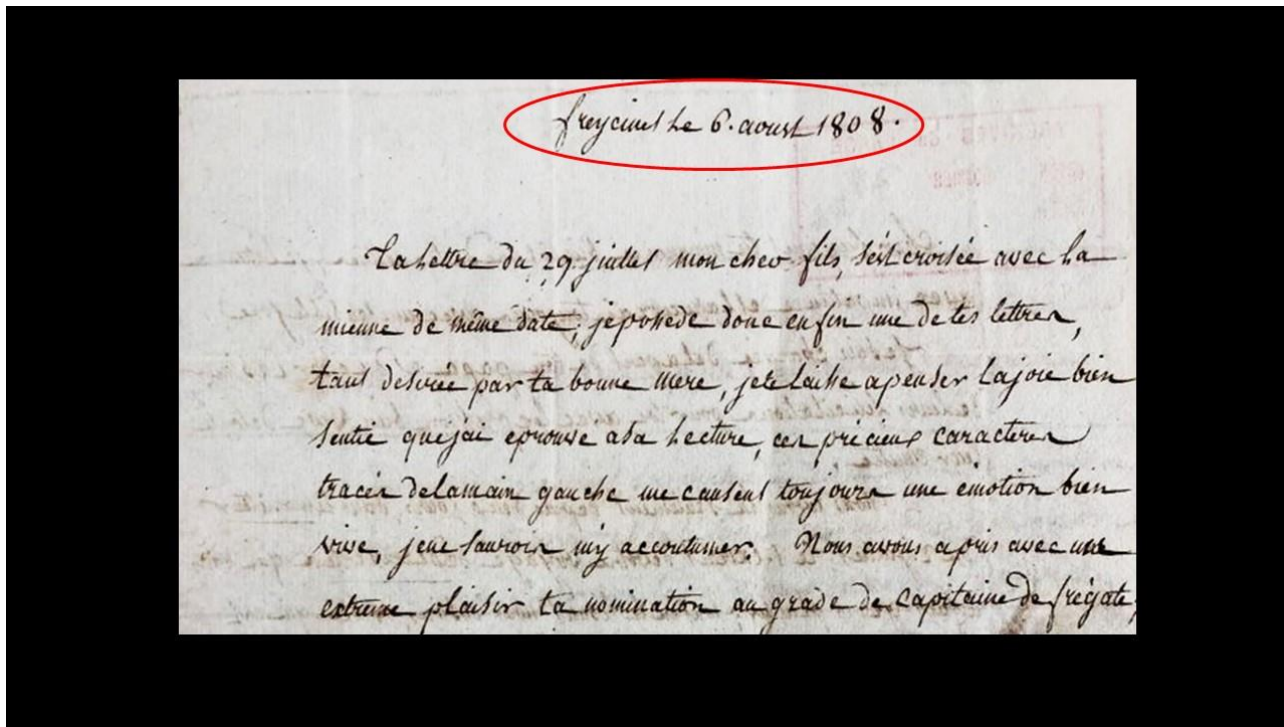 freycinet le 6. aoust 1808.
Ta lettre du 29. juillet mon cher fils, s'est croisée avec la
mienne de même date, je possede donc enfin une de tes lettres,
tant desirée par ta bonne mere, je te laisse a penser la joie bien
sentie que jai eprouvé a sa lecture, ces précieux caracteres
tracés de la main gauche me causent toujours une émotion bien
vive, je ne saurois m'y accoutumer. Nous avons apris avec une
extreme plaisir ta nomination au grade de capitaine de frégate,